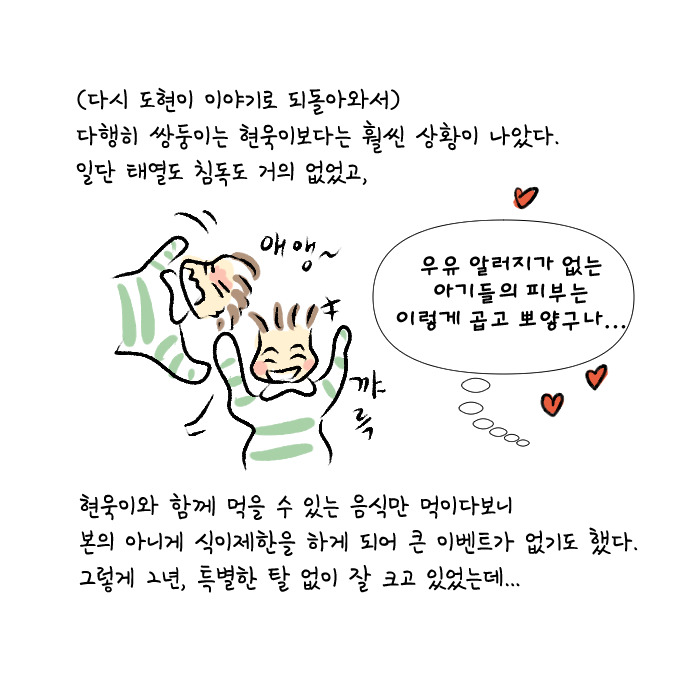 (다시 도현이 이야기로 되돌아와서)
다행히 쌍둥이는 현욱이보다는 훨씬 상황이 나았다.
일단 태열도 침독도 거의 없었고,
애앵~
우유 알러지가 없는
아기들의 피부는
이렇게 곱고 뽀양구나...
꺄
륵
현욱이와 함께 먹을 수 있는 음식만 먹이다보니
본의 아니게 식이제한을 하게 되어 큰 이벤트가 없기도 했다.
그렇게 2년, 특별한 탈 없이 잘 크고 있었는데...